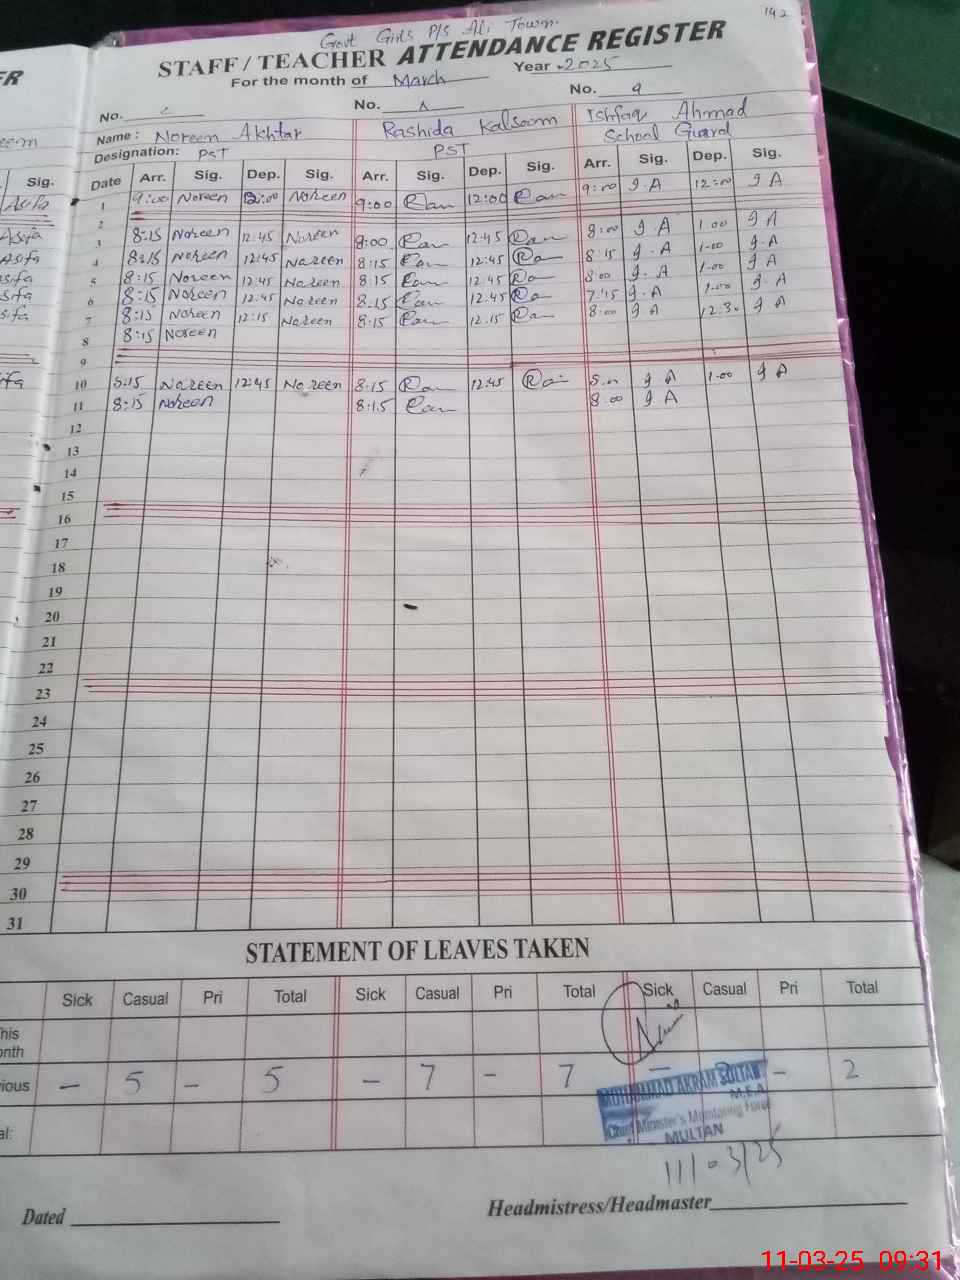 142
Govt Girls P/S Ali Town.
ER STAFF / TEACHER ATTENDANCE REGISTER
For the month of March Year 2025
No. No. 8 No. 9
Name : Noreen Akhtar Rashida Kalsoom Ishfaq Ahmad
Designation: PST PST School Guard
Sig. Date Arr. Sig. Dep. Sig. Arr. Sig. Dep. Sig. Arr. Sig. Dep. Sig.
Asifa 1 9:00 Noreen 12:00 Noreen 9:00 Ran 12:00 Ran 9:00 I.A 12:00 I A
2
Asifa 3 8:15 Noreen 12:45 Noreen 8:00 Ran 12:45 Ran 8:00 I.A 1.00 I A
Asifa 4 8:15 Noreen 12:45 Noreen 8:15 Ran 12:45 Ran 8:15 I.A 1.00 I.A
sifa 5 8:15 Noreen 12:45 Noreen 8:15 Ran 12:45 Ran 8:00 I.A 1.00 I A
sifa 6 8:15 Noreen 12:45 Noreen 8.15 Ran 12:45 Ran 7:45 I.A 1.00 I.A
sifa 7 8:15 Noreen 12:15 Noreen 8:15 Ran 12.15 Ran 8:00 I A 12.30 I A
8 8:15 Noreen
9
ifa 10 8:15 Noreen 12:45 Noreen 8.15 Ran 12:45 Ran 8.00 I.A 1.00 I A
11 8:15 Noreen 8:15 Ran 8:00 I.A
12
13
14
15
16
17
18
19
20
21
22
23
24
25
26
27
28
29
30
31
STATEMENT OF LEAVES TAKEN
Sick Casual Pri Total Sick Casual Pri Total Sick Casual Pri Total
This
onth
ious – 5 – 5 – 7 – 7 – 2 – 2
al:
MUHAMMAD AKRAM SULTAN
M.E.A
Chief Minister's Monitoring Force
MULTAN
11/03/25
Dated Headmistress/Headmaster
11-03-25 09:31